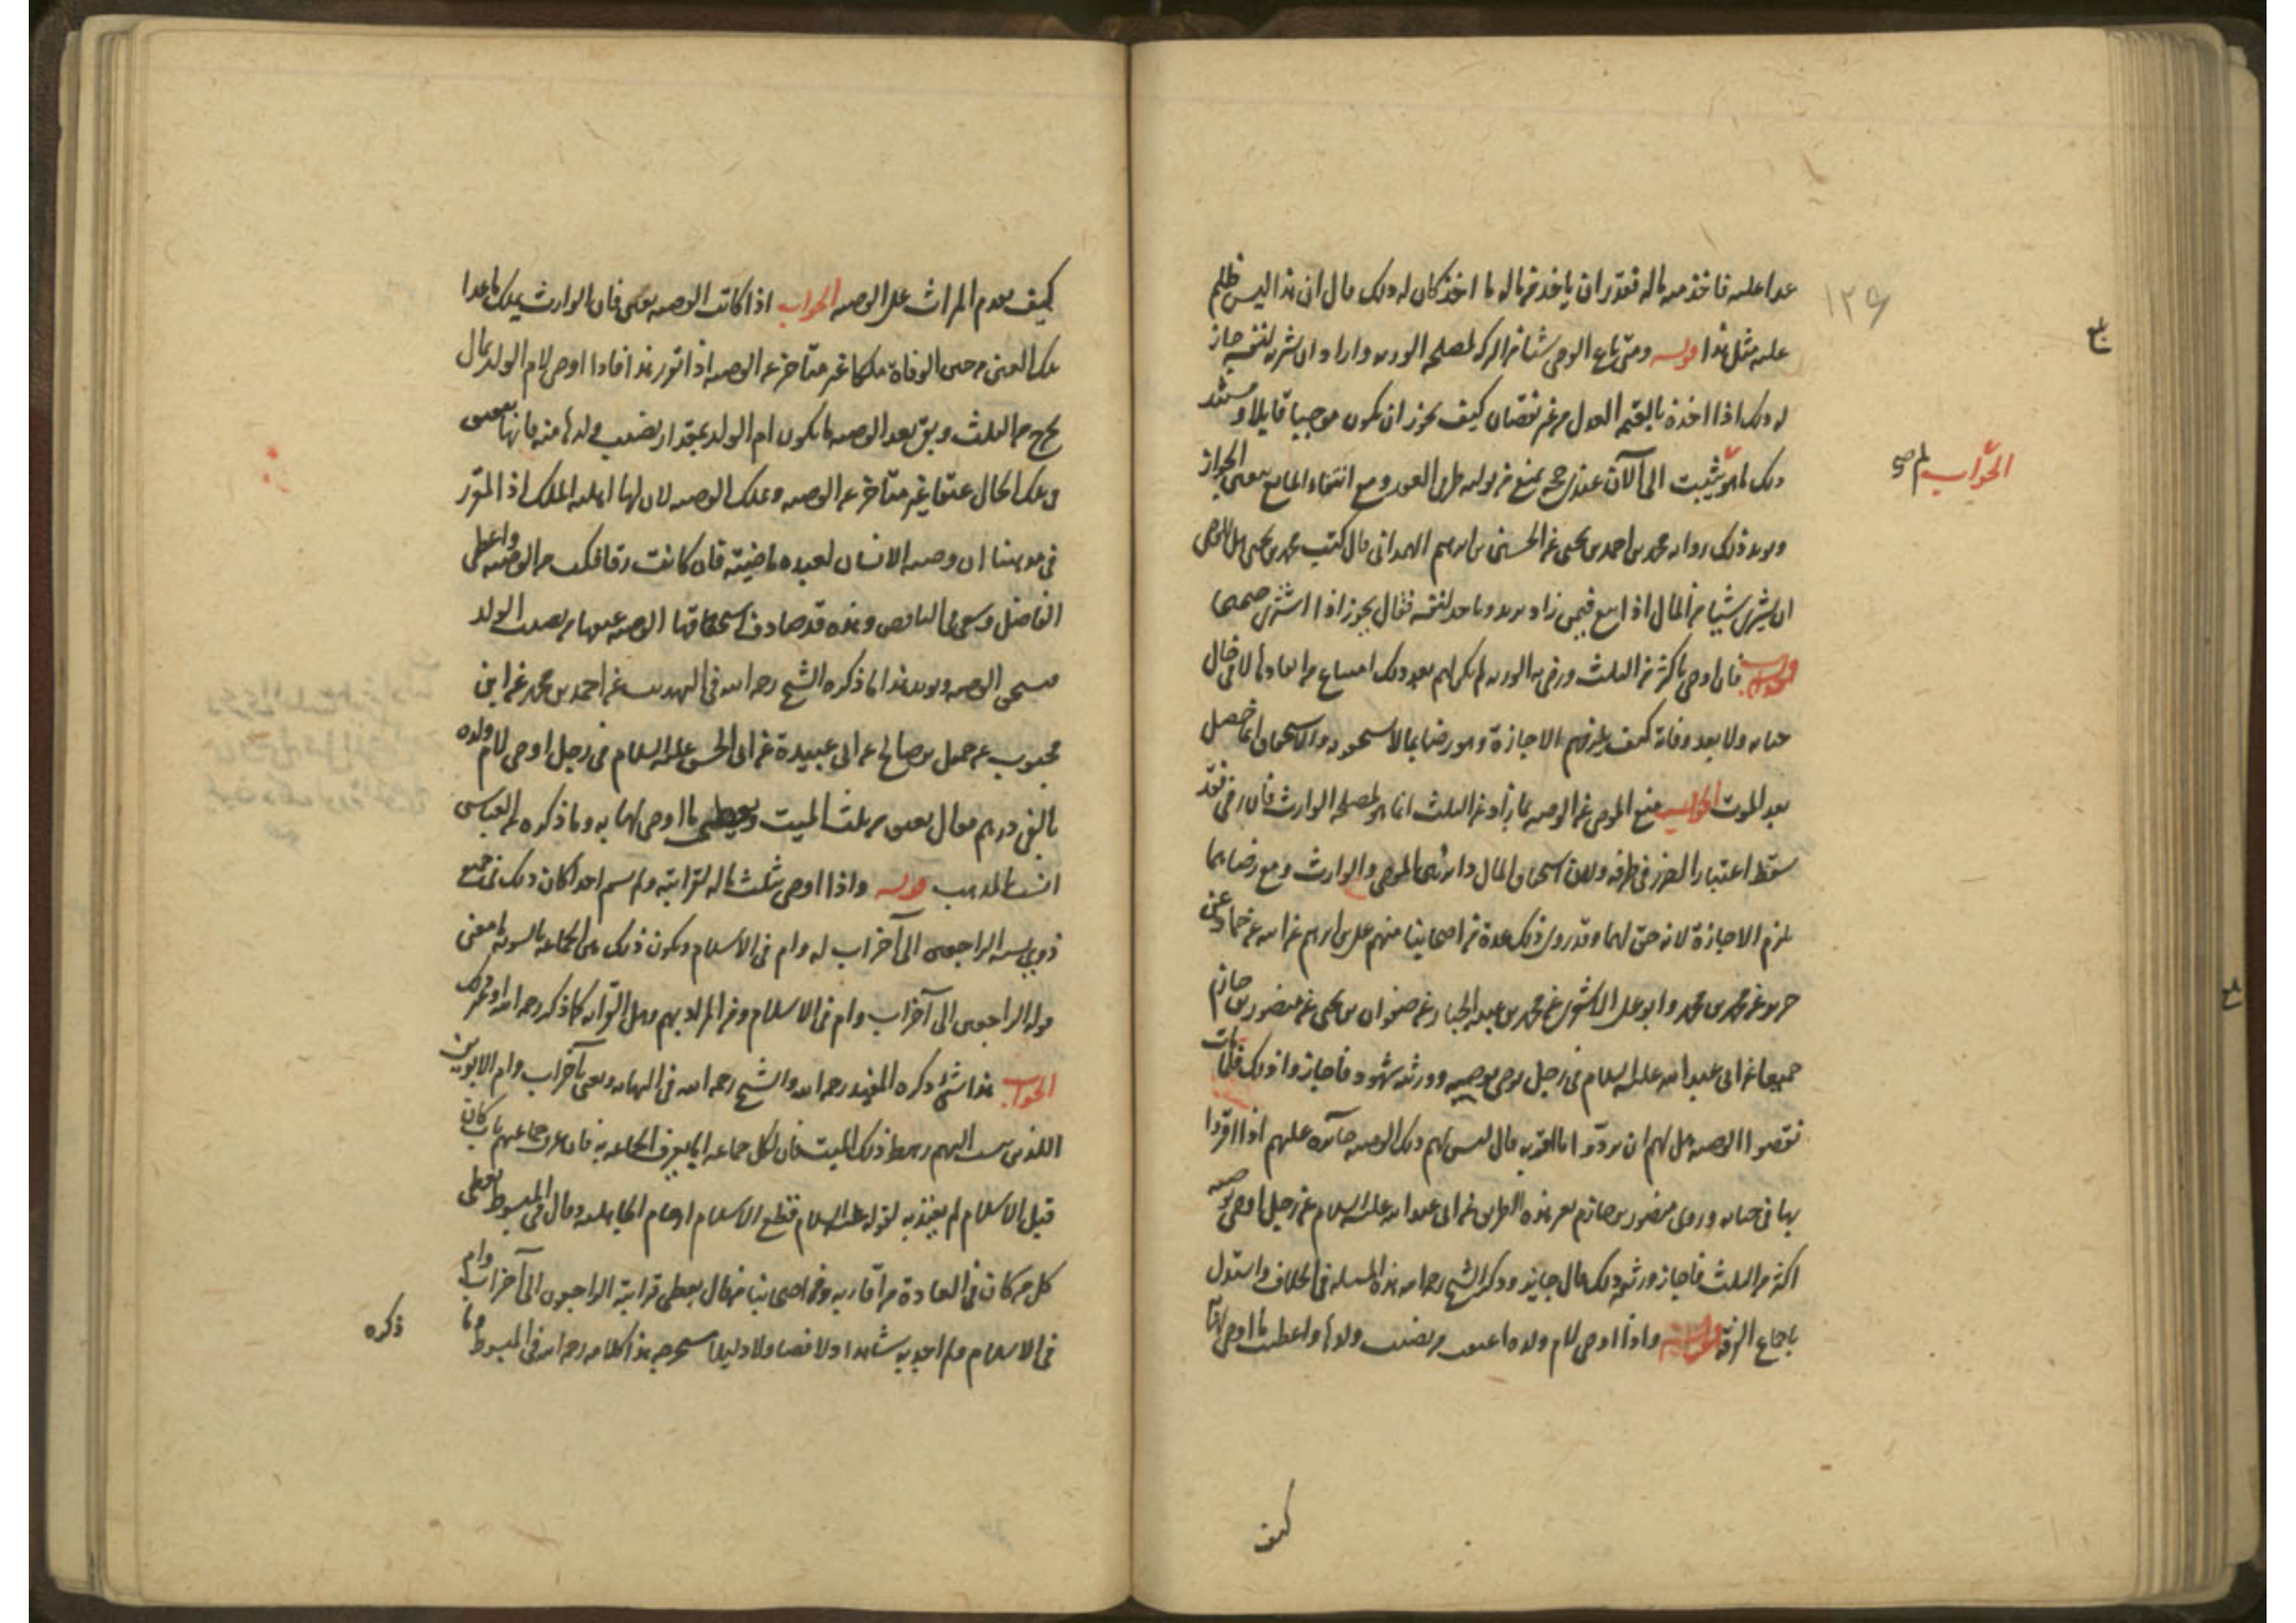 عدا عليه فاخذ منه ماله فقدر ان ياخذ من ماله ما اخذ كان له ذلك قال ان هذا ليس ظلم
عليه مثل هذا قوله ومتى باع الوصي شيئا من التركة لمصلحة الورثة واراد ان يشتريه لنفسه جاز
له ذلك اذا اخذه بالقيمة العدل من غير نقصان كيف يجوز ان يكون موجبا قابلا و
ذلك لم يثبت الى الآن عندي حجة يمنع من تولية طرفي العقد ومع انتفاء المانع الجواز
ويؤيد ذلك رواية محمد بن احمد بن يحيى عن الحسين بن ابرهيم الهمداني قال كتب محمد بن يحيى هل للوصي
ان يشتري شيئا من المال اذا بيع فيمن زاد يزيد وياخذ لنفسه فقال يجوز اذا اشترى صحيحا
قوله فان اوصى باكثر من الثلث ورضي به الورثة لم يكن لهم بعد ذلك امتناع من انفاذها لا في حال
حياته ولا بعد وفاته كيف يلزمهم الاجازة وهو رضا بما لا يستحقونه والاستحقاق انما حصل
بعد الموت الجواب منع الموصي عن الوصية بما زاد عن الثلث انما هو لمصلحة الوارث فان رضي فقد
سقط اعتبار الضرر في طرفه ولان استحقاق المال دائر بين الموصي والوارث ومع رضاهما
يلزم الاجازة لانه حق لهما وقد روى ذلك عدة من اصحابنا منهم علي بن ابرهيم عن ابيه عن حماد عن
حريز عن محمد بن محمد وابو علي الاشعري عن محمد بن عبد الجبار عن صفوان بن يحيى عن منصور بن حازم
جميعا عن ابي عبد الله عليه السلام في رجل اوصى بوصية وورثته شهود فاجازوا ذلك فلما مات
نقضوا الوصية هل لهم ان يردوا ما اقروا به قال ليس لهم ذلك الوصية جائزة عليهم اذا اقروا
بها في حياته وروى منصور بن حازم بعد هذه الطريق عن ابي عبد الله عليه السلام عن رجل اوصى بوصية
اكثر من الثلث فاجاز ورثته ذلك قال جايز وذكر الشيخ رحمه الله هذه المسئلة في الخلاف واستدل
باجماع الفرقة قوله واذا اوصى لام ولده اعتقت من نصيب ولدها واعطيت ما اوصى لها
كيف
١٢٩
بلغ
الجواب
كيف يقدم الميراث على الوصية الجواب اذا كانت الوصية بعين فان الوارث يملك ما عدا
تلك العين من حين الوفاة ملكا غير متاخر عن الوصية اذا تقرر هذا فاذا اوصى لام الولد بمال
يخرج من الثلث وبقي بعد الوصية ما يكون ام الولد بمقدار نصيب ولدها منه فانها تنعتق
في تلك الحال عتقا غير متاخر عن الوصية وتملك الوصية لان لها اهلية الملك اذ المقرر
في مذهبنا ان وصية الانسان لعبده ماضية فان كانت رقا فكت من الوصية واعطي
الفاضل وسعى في الناقص وهذه قد صادف استحقاقها الوصية عتقها من نصيب الولد
فتستحق الوصية ويؤيد هذا ما ذكره الشيخ رحمه الله في التهذيب عن احمد بن محمد عن ابن
محبوب عن جميل بن صالح عن ابي عبيدة عن ابي الحسن عليه السلام في رجل اوصى لام ولده
بالفي درهم فقال تعتق من ثلث الميت وتعطى ما اوصى لها به وما ذكره
انسب المذهب قوله واذا اوصى بثلث ماله لقرابته ولم يسم احدا كان ذلك في جميع
ذوي نسبه الراجعين الى آخر اب له وام في الاسلام ويكون ذلك بين الجماعة بالسوية ما معنى
قوله الراجعين الى آخر اب وام في الاسلام ومن المراد بهم وهل القرابة كما ذكر رحمه الله او غير ذلك
الجواب هذا شئ ذكره المفيد رحمه الله والشيخ رحمه الله في النهاية ويعني بآخر اب وام الابوين
اللذين ينسب اليهم رهط ذلك الميت فان لكل جماعة ابا يعرف الجماعة به فان عرف جماعتهم باب كان
قبل الاسلام لم يعتد به لقوله عليه السلام قطع الاسلام ارحام الجاهلية وقال في المبسوط يعطى
كل من كان في العادة من اقاربه ومن اصحابنا من قال يعطى قرابته الراجعون الى آخر اب وام
في الاسلام ولم اجد به شاهدا ولا نصا ولا دليلا مستخرجا هذا كلامه رحمه الله في المبسوط وما
ذكره